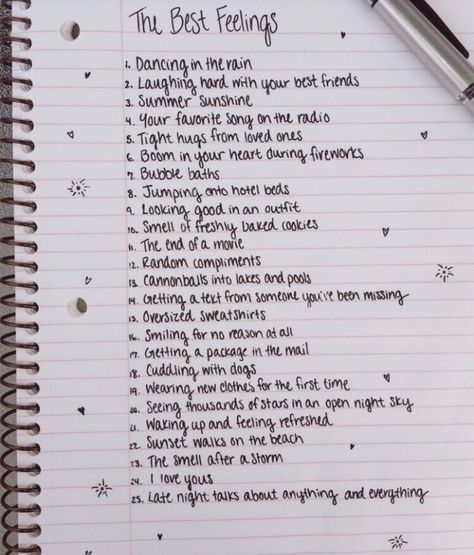 The Best Feelings
1. Dancing in the rain
2. Laughing hard with your best friends
3. Summer sunshine
4. Your favorite song on the radio
5. Tight hugs from loved ones
6. Boom in your heart during fireworks
7. Bubble baths
8. Jumping onto hotel beds
9. Looking good in an outfit
10. Smell of freshly baked cookies
11. The end of a movie
12. Random compliments
13. Cannonballs into lakes and pools
14. Getting a text from someone you've been missing
15. Oversized sweatshirts
16. Smiling for no reason at all
17. Getting a package in the mail
18. Cuddling with dogs
19. Wearing new clothes for the first time
20. Seeing thousands of stars in an open night sky
21. Waking up and feeling refreshed
22. Sunset walks on the beach
23. The smell after a storm
24. I love yous
25. Late night talks about anything and everything